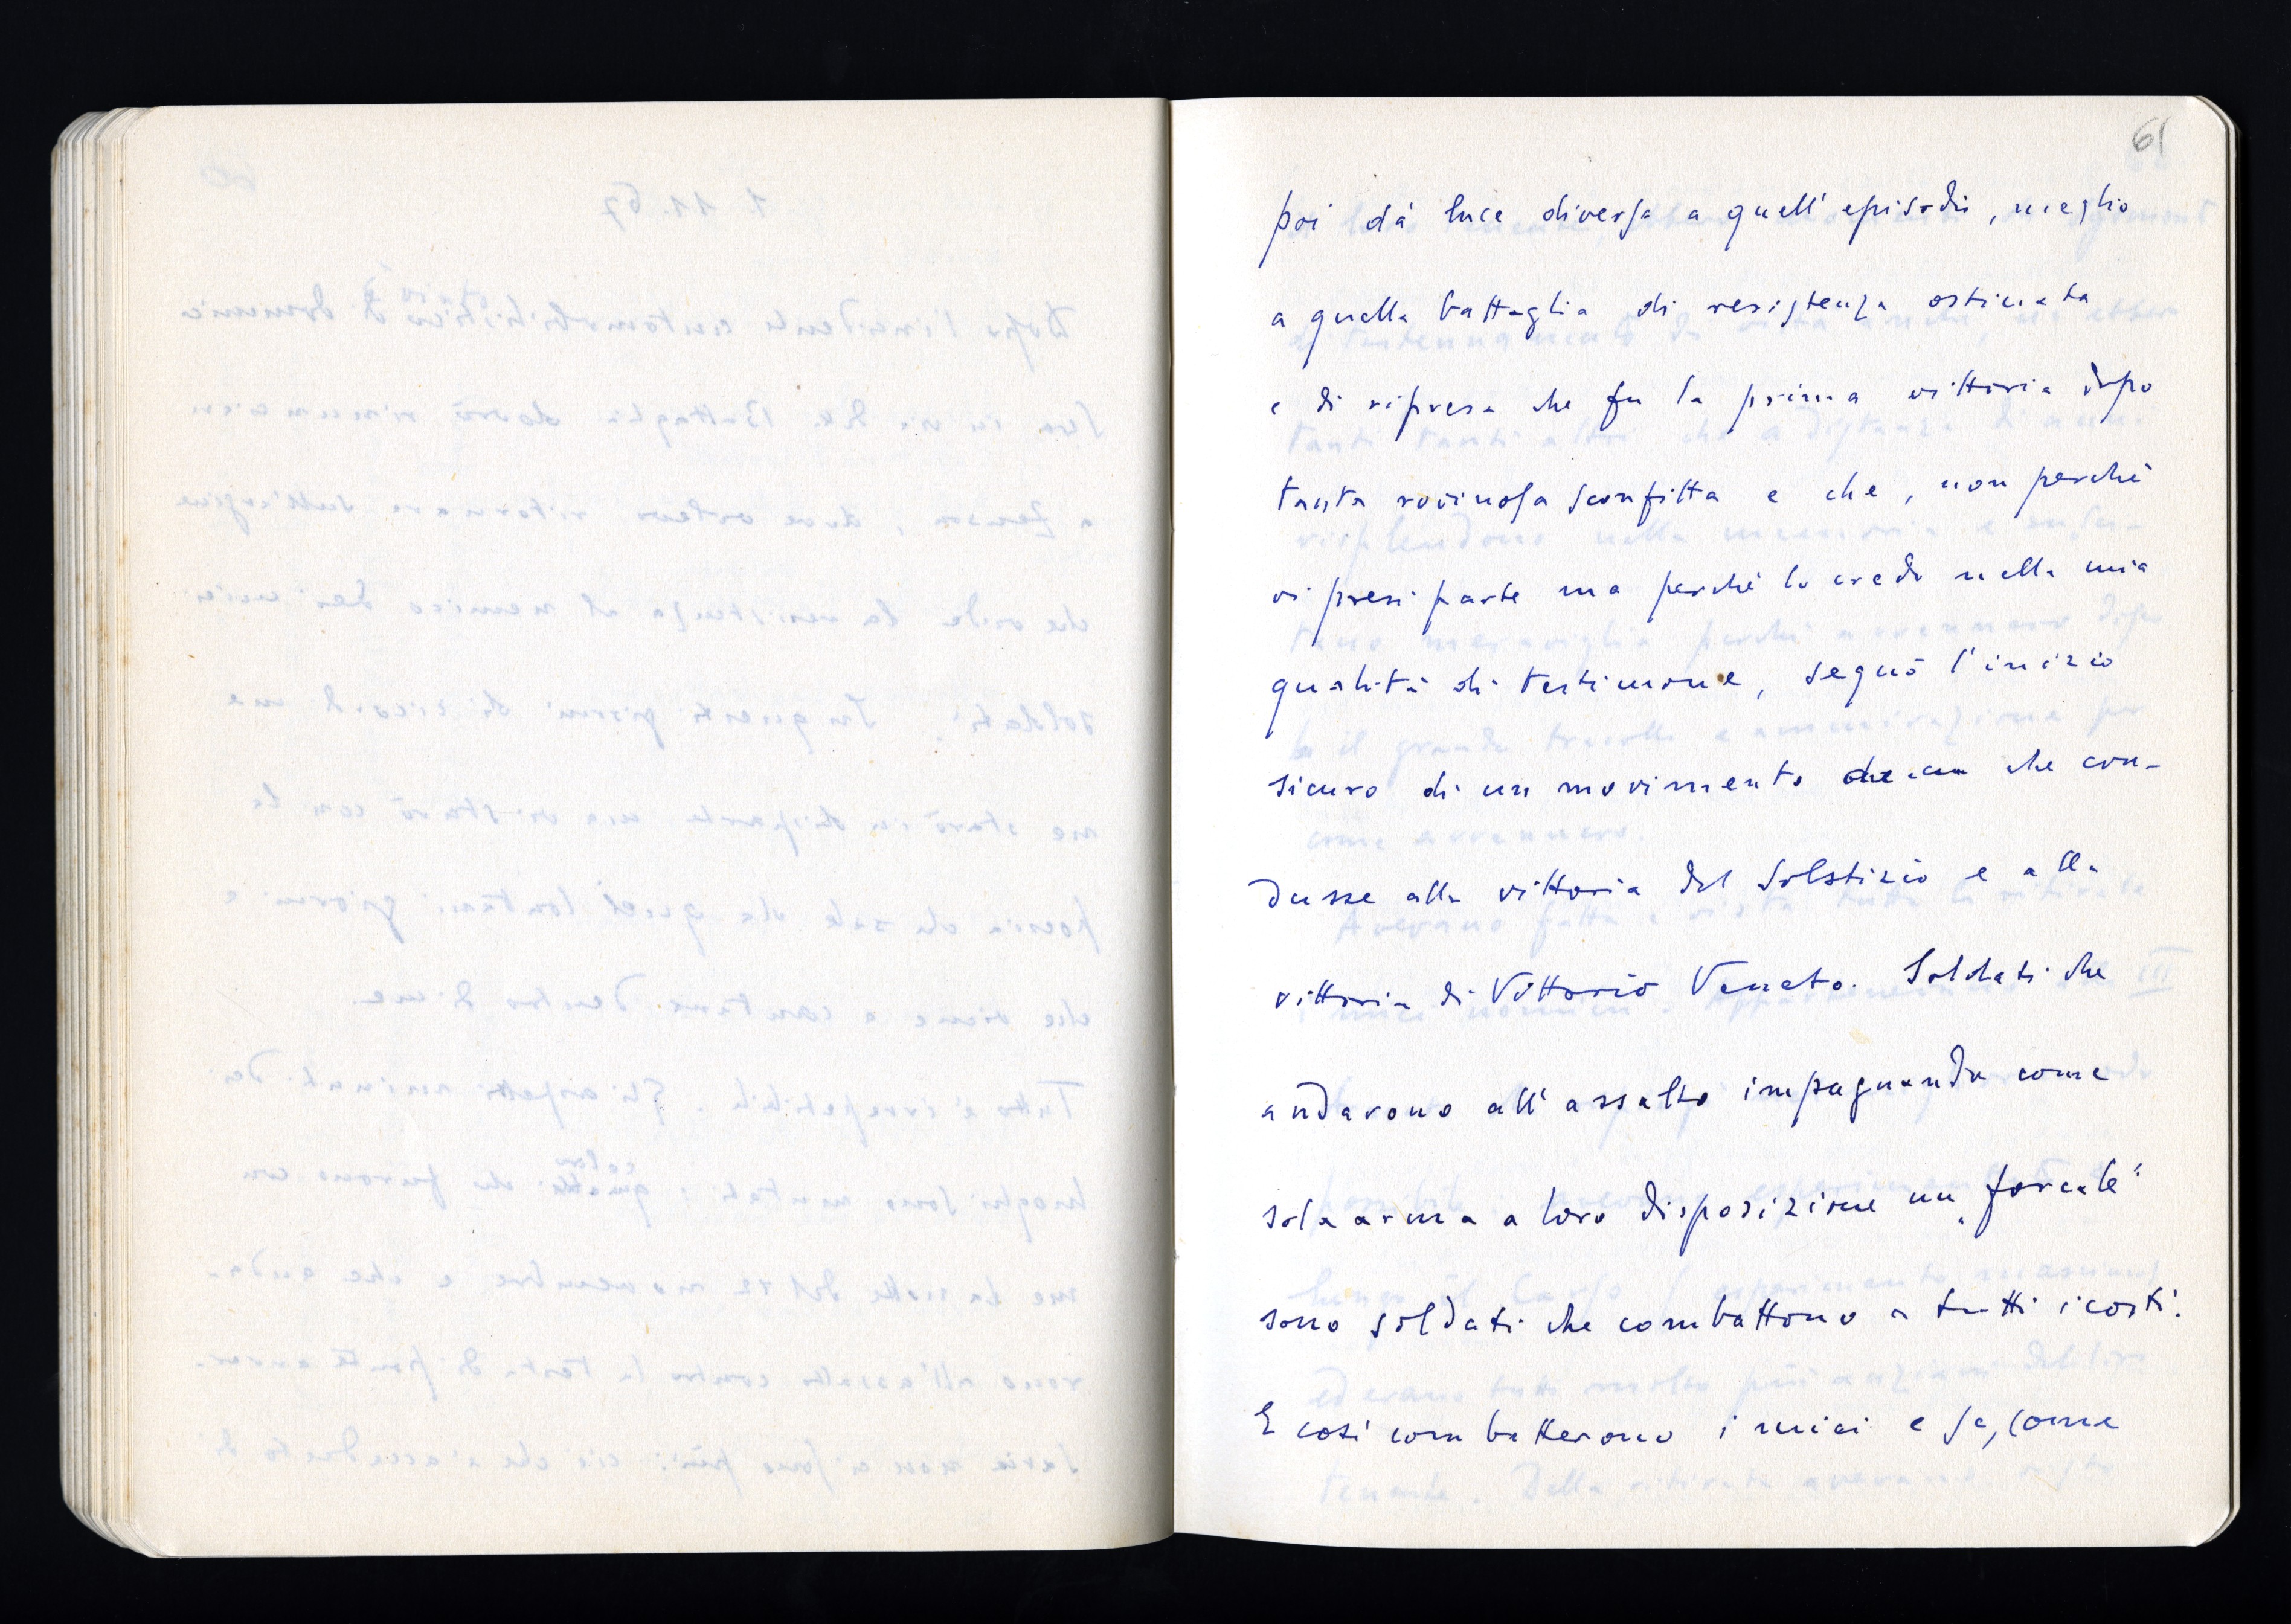 61
poi dà luce diversa a quell'episodio, meglio
a quella battaglia di resistenza ostinata
e di ripresa che fu la prima vittoria dopo
tanta rovinosa sconfitta e che, non perché
vi presi parte ma perché lo credo nella mia
qualità di testimone, segnò l'inizio
sicuro di un movimento che con-
dusse alla vittoria del Solstizio e alla
vittoria di Vittorio Veneto. Soldati che
andarono all'assalto impugnando come
sola arma a loro disposizione un „forcale"
sono soldati che combattono a tutti i costi.
E così combatterono i miei e se, come